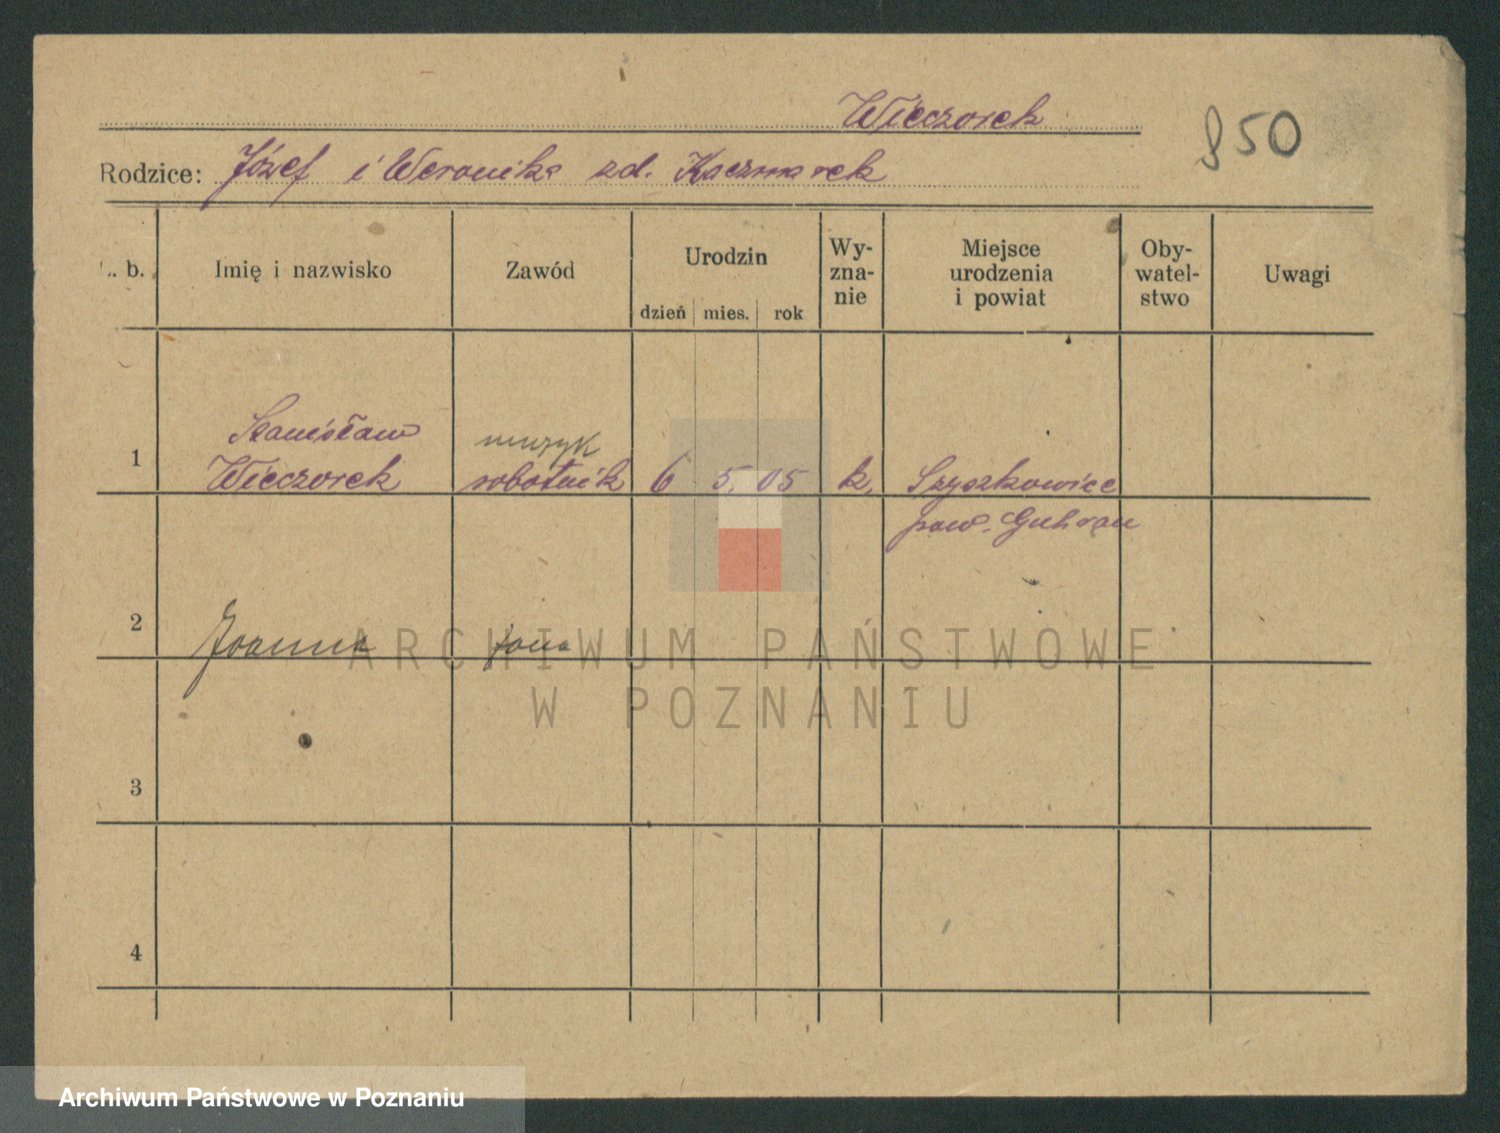 Wieczorek
850
Rodzice: Józef i Weronika zd. Kaczmarek
L. b.
Imię i nazwisko
Zawód
Urodzin
dzień mies. rok
Wy-
zna-
nie
Miejsce
urodzenia
i powiat
Oby-
watel-
stwo
Uwagi
Stanisław
muzyk
1 Wieczorek robotnik 6 5. 05 k. Szyszkowice
pow. Guhrau
2 Joanna żona
3
4
ARCHIWUM PAŃSTWOWE
W POZNANIU
Archiwum Państwowe w Poznaniu